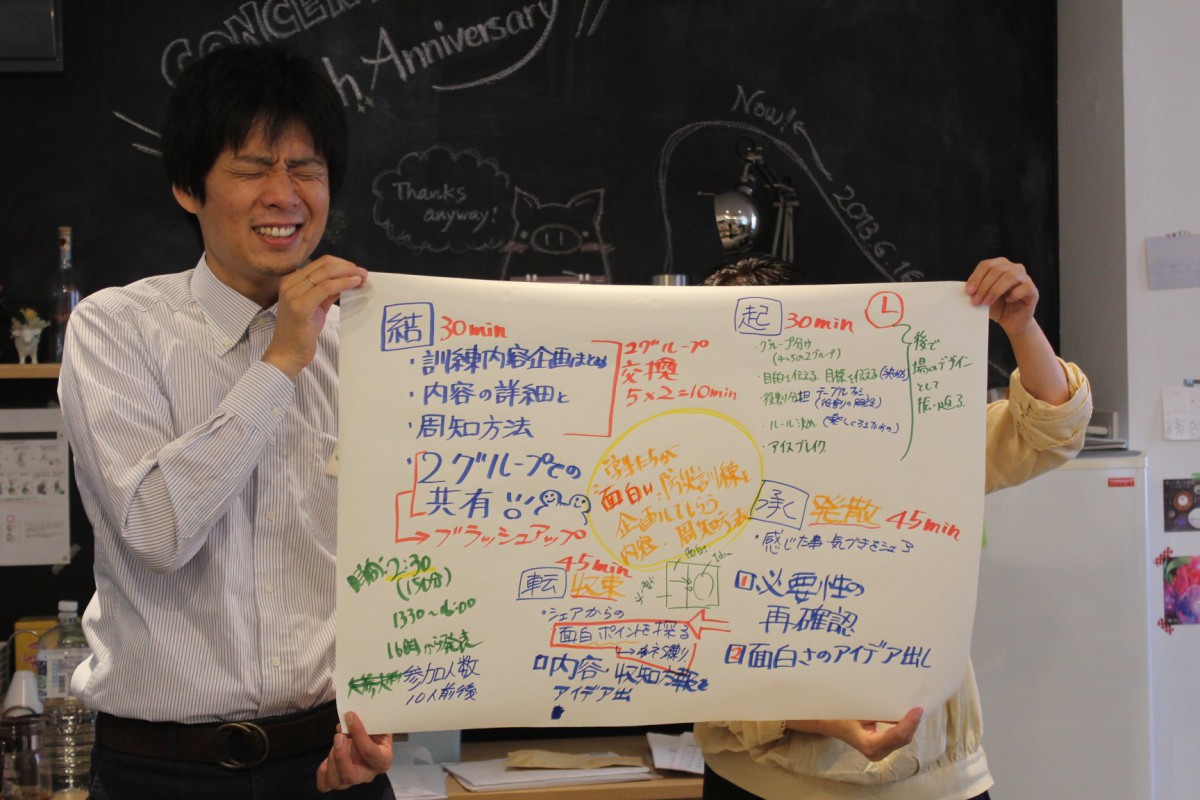 CONCENT
th Anniversary
Thanks
anyway!
Now!!
2013.6.16
起 30min
・グループ分け
(4〜5の2グループ)
・目的を伝える 目標を伝える
・役割分担
・ルール決め
・アイスブレイク
後で
場のデザイン
として
振り返る
結 30min
・訓練内容企画まとめ
・内容の詳細と
・周知方法
2グループ
交換
5×2=10min
・2グループでの
共有
→ブラッシュアップ
学生たちが
面白い防災訓練を
企画してもらう
内容・周知方法
承 発散 45min
・感じた事・気づきをシェア
1 必要性の
再確認
2 面白さのアイデア出し
45min
転 収束
・シェアからの
面白ポイントを探る
内容・
アイデア出
2:30
(150分)
1330〜16:00
16時から発表
参加人数
10人前後